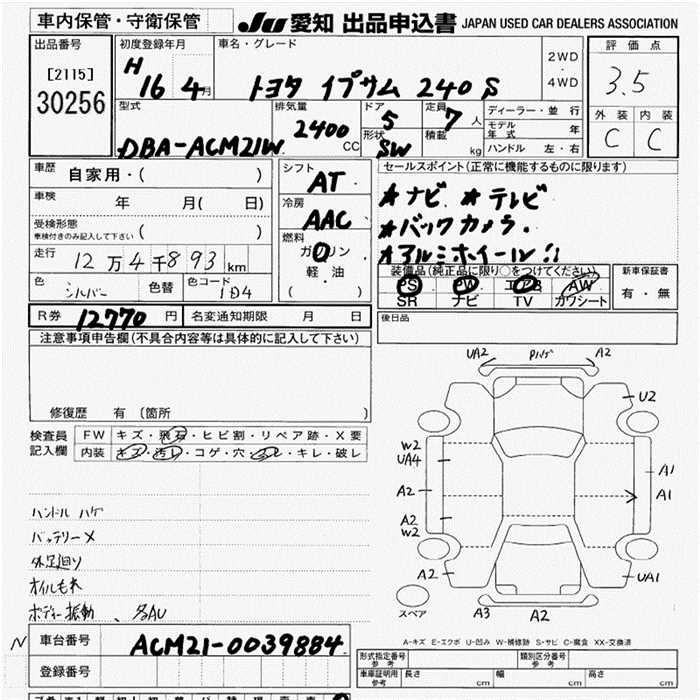 車内保管・守衛保管
JU 愛知 出品申込書 JAPAN USED CAR DEALERS ASSOCIATION
出品番号
[2115]
30256
初度登録年月
H 16 4月
車名・グレード
トヨタ イプサム 240 S
2WD
・
4WD
評価点
3.5
外装 内装
C C
型式
DBA-ACM21W
排気量
2400 CC
ドア
5
形状
SW
定員
7 人
積載
kg
ディーラー・並行
モデル年式 年
ハンドル 左・右
車歴 自家用・( )
車検 年 月( 日)
受検形態
車検付きのみ記入して下さい ( )
走行 12万4千893km
色 シルバー 色替 色コード 1D4
シフト
AT
冷房
AAC
燃料
ガソリン
軽・油
( )
セールスポイント(正常に機能するものに限ります)
★ナビ ★テレビ
★バックカメラ.
★アルミホイール!!
装備品(純正品に限り○をつけてください)
PS PW エアB AW
SR ナビ TV カワシート
新車保証書
有・無
R券 12770 円 名変通知期限 月 日
後日品
注意事項申告欄(不具合内容等は具体的に記入して下さい)
修復歴 有(箇所 )
検査員
記入欄
FW キズ・飛石・ヒビ割・リペア跡・X要
内装 キズ・汚れ・コゲ・穴・スレ・キレ・破レ
ハンドル ハゲ
バッテリーメ
外足廻り
オイルもれ
ボディー振動、
UA2 Pハゲ A2
U2
W2
UA4
A1
A2
A1
A2
W2
A2
UA1
スペア
A3
A2
A-キズ E-エクボ U-凹み W-補修跡 S-サビ C-腐食 XX-交換済
N
車台番号 ACM21-0039884
登録番号
形式指定番号
参考
類別区分番号
参考
車庫証明用
参考
長さ cm 幅 cm 高さ cm